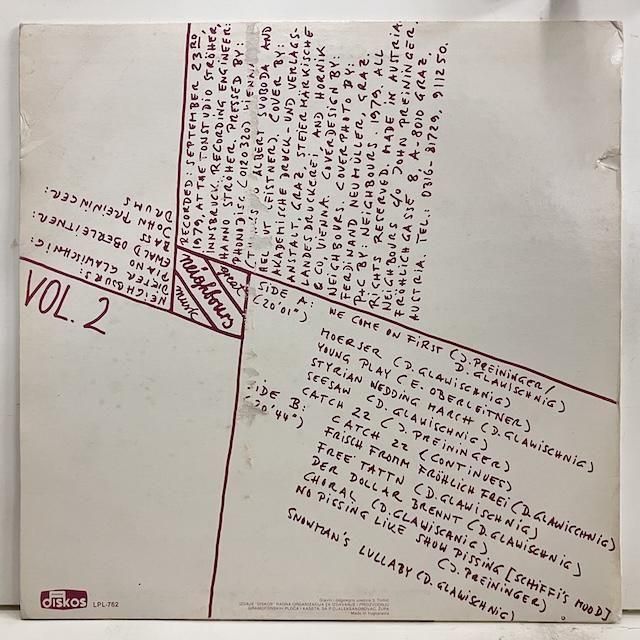 RECORDED: SEPTEMBER 23RD,
1979, AT THE TONSTUDIO STRÖHER,
INNSBRUCK. RECORDING ENGINEER:
HANNO STRÖHER. PRESSED BY:
PHONODISC (0120320) VIENNA
ALBERT SVOBODA AND
LEISTNER). COVER BY:
AKADEMISCHE DRUCK- UND VERLAGS-
ANSTALT, GRAZ, STEIERMÄRKISCHE
LANDESDRUCKEREI, AND HORNIK
& CO, VIENNA. COVERDESIGN BY:
NEIGHBOURS. COVERPHOTO BY:
FERDINAND NEUMÜLLER, GRAZ.
P+C BY NEIGHBOURS. 1979. ALL
RIGHTS RESERVED. MADE IN AUSTRIA.
NEIGHBOURS C/O JOHN PREININGER.
FRÖHLICHGASSE 8 A-8010 GRAZ.
AUSTRIA. TEL.: 0316-81729, 911250.
NEIGHBOURS:
DIETER GLAWISCHNIG:
PIANO
EWALD OBERLEITNER:
BASS
JOHN PREININGER:
DRUMS
great
neighbours
music
VOL. 2
SIDE A:
(20'01")
WE COME ON FIRST (J. PREININGER/
D. GLAWISCHNIG)
MOERSER (D. GLAWISCHNIG)
YOUNG PLAY (E. OBERLEITNER)
STYRIAN WEDDING MARCH (D. GLAWISCHNIG)
SEESAW (D. GLAWISCHNIG)
CATCH 22 (J. PREININGER)
SIDE B:
20'44")
CATCH 22 (CONTINUES)
FRISCH FROMM FRÖHLICH FREI (D. GLAWISCHNIG)
FREE TATTN (D. GLAWISCHNIG)
DER DOLLAR BRENNT (D. GLAWISCHNIG)
CHORAL (D. GLAWISCHNIG)
NO PISSING LIKE SHOW PISSING [SCHIFFI'S MOOD]
(J. PREININGER)
SNOWMAN'S LULLABY (D. GLAWISCHNIG)
diskos LPL-762
Made in Yugoslavia